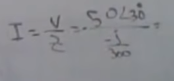 I = V/Z = 50∠30 / (-j/300) =